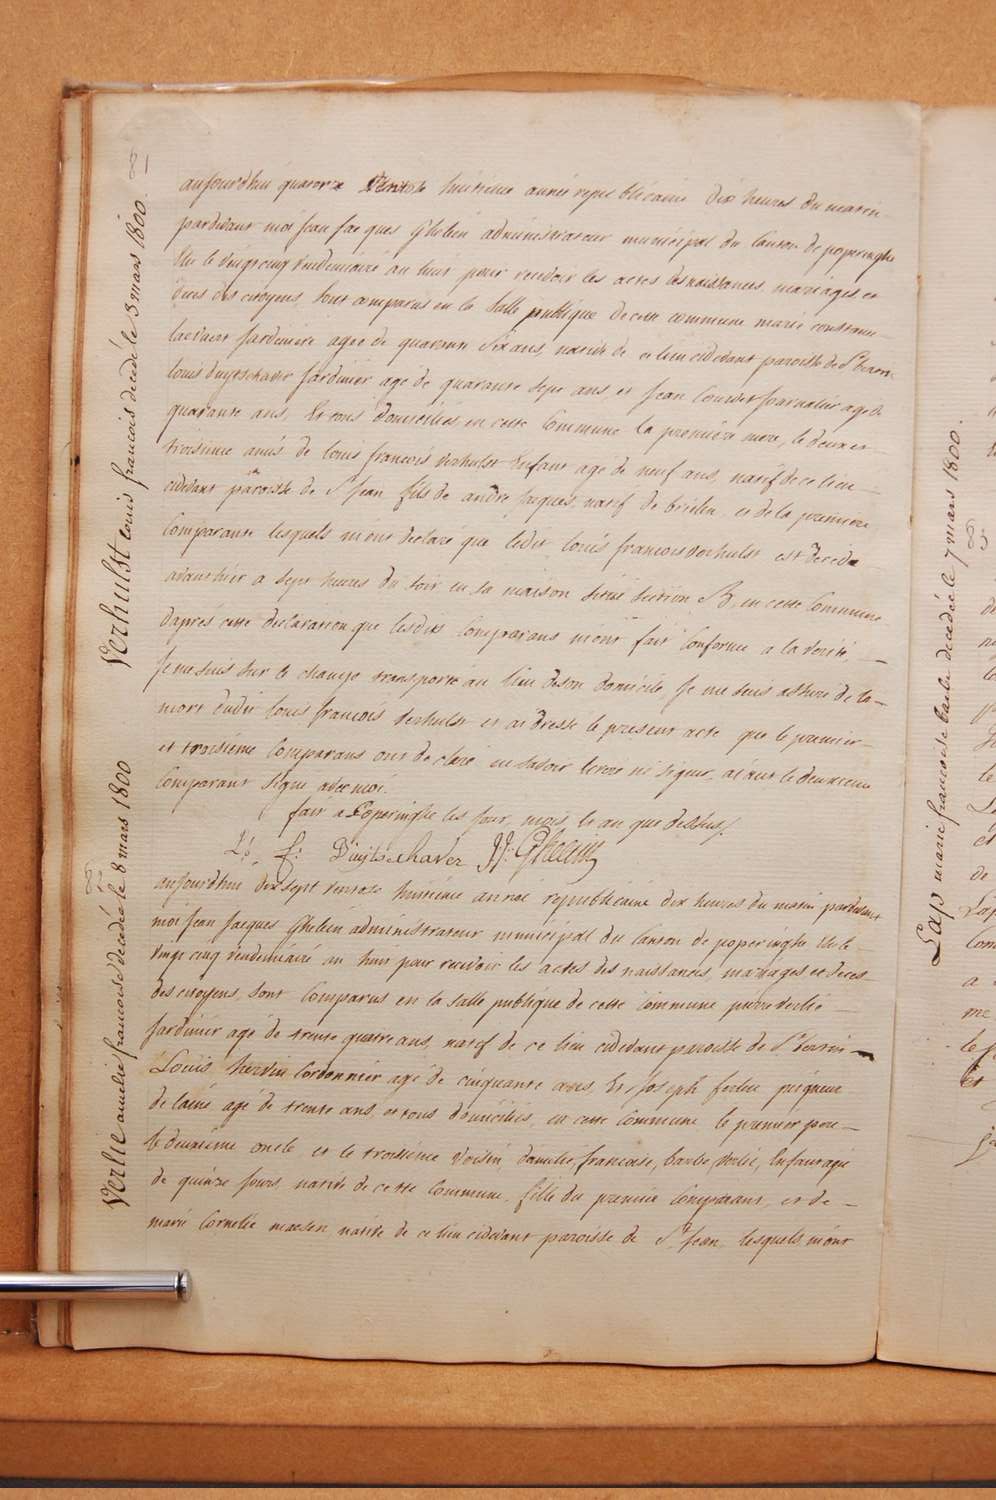 81
Verhulst Louis francois decedé le 3 mars 1800.
aujourdhui quatorze Ventose huitieme année republicaine dix heures du matin
pardevant moi Jean Jacques Ghelein administrateur municipal du Canton de poperinghe
Elu le vingt cinq vendemiaire an huit pour recevoir les actes des naissances, mariages et
deces des citoyens, sont comparus en la Salle publique de cette commune marie constance
Jardiniere agée de quarante six ans, native de ce lieu cidevant paroisse de St bertin
Louis Duytschaver Jardinier agé de quarante sept ans, et Jean Journalier agé de
quarante ans, Et tous domiciliés en cette Commune la premiere mere, le deux et
troisieme amis de Louis francois verhulst Enfant agé de neuf ans, natif de ce lieu
cidevant paroisse de St Jean fils de andré Jacques, natif de brielen et de la premiere
Comparante lesquels m'ont declaré que ledit Louis francois verhulst est decedé
avanthier a sept heures du soir en sa maison situé section B, en cette Commune
d'aprés cette declaration que lesdits Comparans m'ont fait Conforme a la verité,
Je me suis sur le champ transporté au lieu de son domicile, Je me suis assuré de la
mort dudit Louis francois verhulst et ai dressé le present acte que le premier
et troisieme Comparans ont declaré ne savoir ecrire ni signer, aiant le deuxieme
Comparant signé avec moi.
fait a Poperinghe les jour, mois, et an que dessus/.
L: f: Duytschaver JJ: Ghelein
82
Verlié amelie francoise decedée le 8 mars 1800
aujourdhui dix sept ventose huitieme année republicaine dix heures du matin pardevant
moi Jean Jacques Ghelein administrateur municipal du Canton de poperinghe Elu le
vingt cinq vendemiaire an huit pour recevoir les actes des naissances, mariages et deces
des citoyens, sont Comparus en la salle publique de cette Commune pierre verlié
Jardinier agé de trente quatre ans, natif de ce lieu cidevant paroisse de St bertin
Louis Cordonnier agé de cinquante ans, Et Joseph peigneur
de laine agé de trente ans, et tous domiciliés, en cette Commune le premier pere
le deuxieme oncle et le troisieme Voisin, d'amelie, francoise, barbe, Verlié, Enfant agée
de quinze jours, native de cette Commune, fille du premier Comparant, et de
marie Cornelie maesen native de ce lieu cidevant paroisse de St Jean, lesquels m'ont
Lap marie francoise barbe decedée le 7 mars 1800.